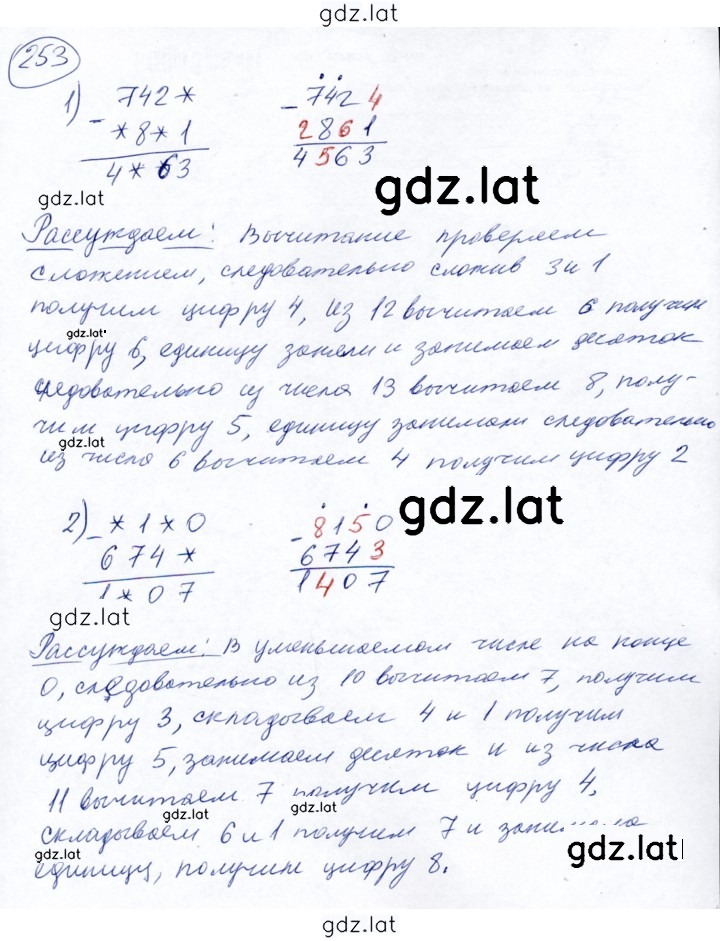 gdz.lat
253
1) - 742* - 7424
*8*1 2861
4**63 4563
gdz.lat
gdz.lat
Рассуждаем: Вычитание проверяем
сложением, следовательно сложив 3 и 1
получим цифру 4, из 12 вычитаем 6 получим
gdz.lat
цифру 6, единицу заняли и занимаем десяток
следовательно из числа 13 вычитаем 8, полу-
чим цифру 5, единицу занимали следовательно
gdz.lat
из числа 6 вычитаем 4 получим цифру 2
gdz.lat
2) - *1*0 - 8150
674* 6743
1*07 1407
gdz.lat
Рассуждаем: В уменьшаемом числе на конце
0, следовательно из 10 вычитаем 7, получим
цифру 3, складываем 4 и 1 получим
цифру 5, занимаем десяток и из числа
11 вычитаем 7 получим цифру 4,
gdz.lat
gdz.lat
складываем 6 и 1 получим 7 и
gdz.lat
gdz.lat
единицу, получим цифру 8.
gdz.lat